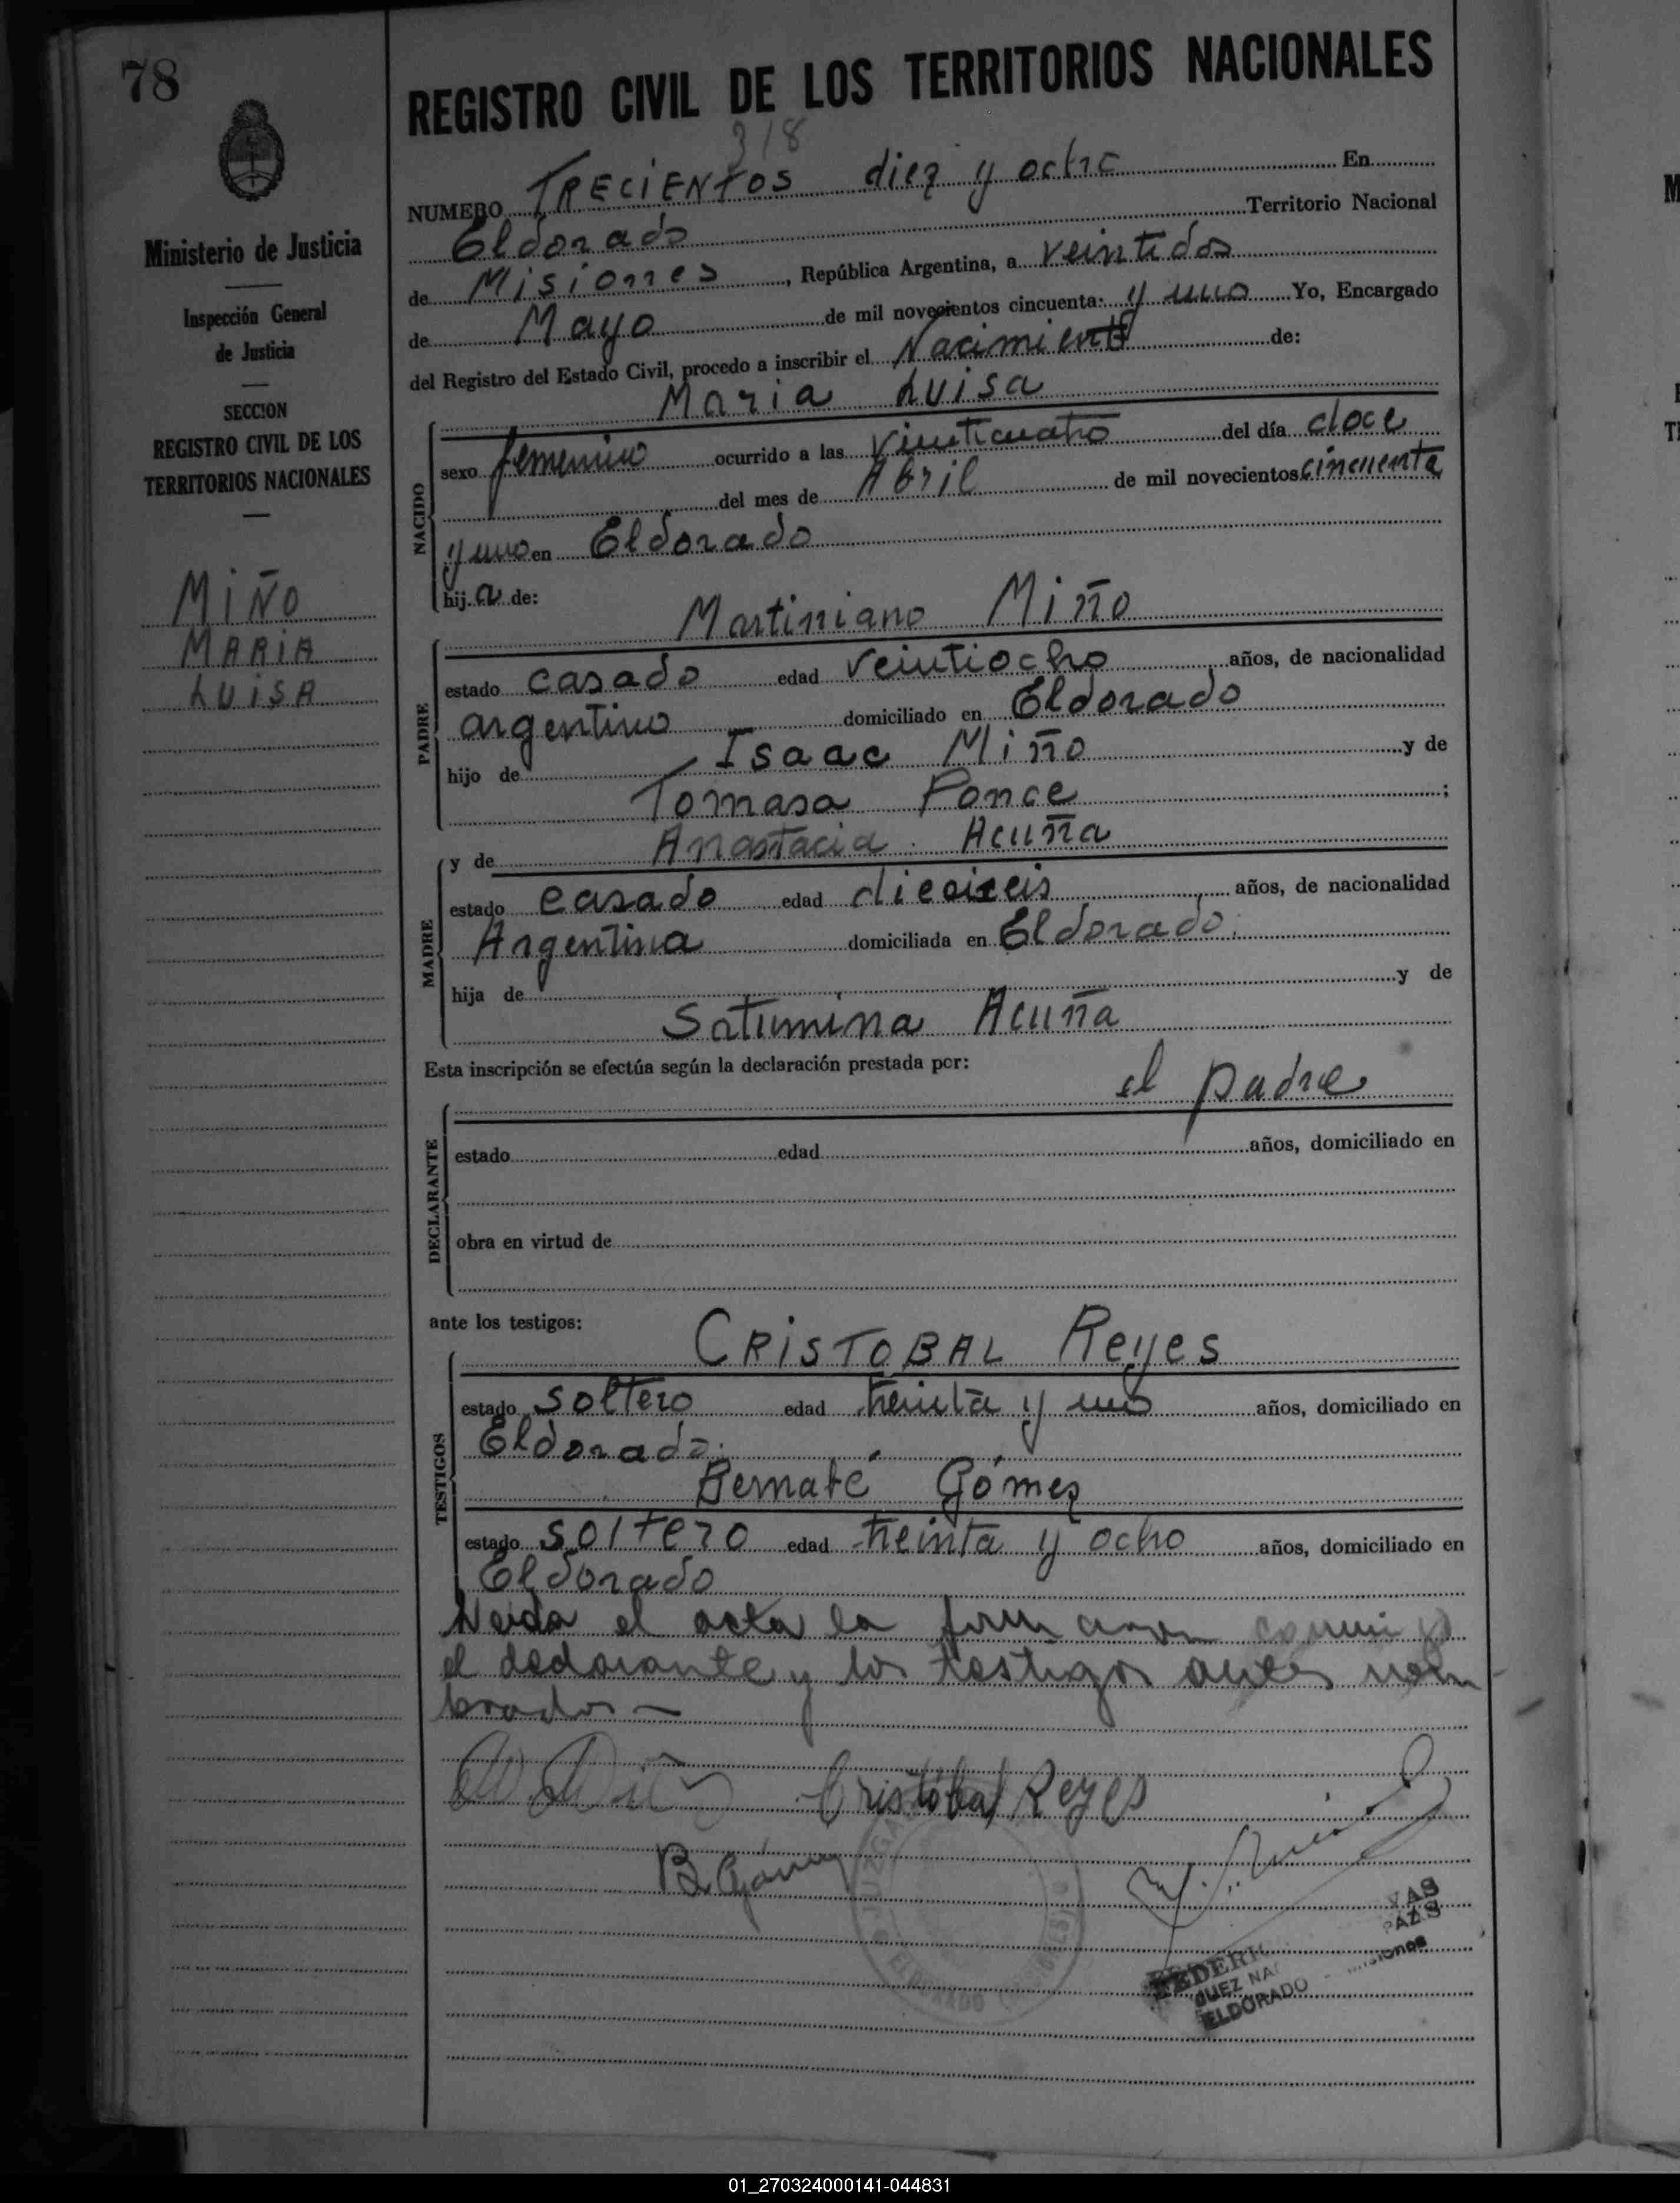 78
Ministerio de Justicia
Inspección General
de Justicia
SECCION
REGISTRO CIVIL DE LOS
TERRITORIOS NACIONALES
MIÑO
MARIA
LUISA
REGISTRO CIVIL DE LOS TERRITORIOS NACIONALES
318
NUMERO TRECIENTOS diez y ocho En
Eldorado Territorio Nacional
de Misiones, República Argentina, a veintidos
de Mayo de mil novecientos cincuenta: y uno Yo, Encargado
del Registro del Estado Civil, procedo a inscribir el Nacimiento de:
Maria Luisa
NACIDO
sexo femenino ocurrido a las veinticuatro del día doce
del mes de Abril de mil novecientos cincuenta
y uno en Eldorado
hij a de:
Martiniano Miño
PADRE
estado casado edad veintiocho años, de nacionalidad
argentino domiciliado en Eldorado
hijo de Isaac Miño y de
Tomasa Ponce ;
y de Anastacia Acuña
MADRE
estado casado edad dieciseis años, de nacionalidad
Argentina domiciliada en Eldorado.
hija de y de
Saturnina Acuña
Esta inscripción se efectúa según la declaración prestada por:
el padre
DECLARANTE
estado edad años, domiciliado en
obra en virtud de
ante los testigos:
CRISTOBAL Reyes
TESTIGOS
estado soltero edad treinta y uno años, domiciliado en
Eldorado.
Bernabé Gómez
estado soltero edad treinta y ocho años, domiciliado en
Eldorado
Leida el acta la firmaron conmigo
el declarante y los testigos antes nom
brados —
Cristóbal Reyes
B. Gómez
ELDORADO
FEDERI VAS
JUEZ NA PAZ S
ELDORADO - Misiones
01_270324000141-044831